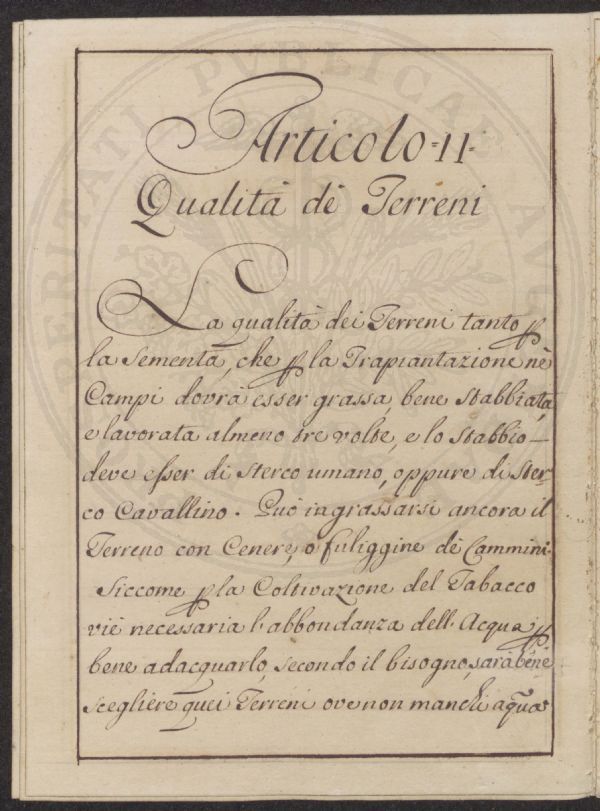 Articolo =II=
Qualità dè Terreni
La qualità dei Terreni tanto ꝑ
la Sementa, che ꝑ la Trapiantazione nè
Campi dovrà esser grassa, bene stabbiata,
e lavorata almeno tre volte, e lo stabbio
deve esser di sterco umano, oppure di ster=
co Cavallino. Può ingrassarsi ancora il
Terreno con Cenere, o fuliggine dè Cammini.
Siccome ꝑ la Coltivazione del Tabacco
viè necessaria l'abbondanza dell'Acqua ꝑ
bene adacquarlo, secondo il bisogno, sarà bene
scegliere quei Terreni ove non manchi aqua
PERITATI PVBLICAE AVG